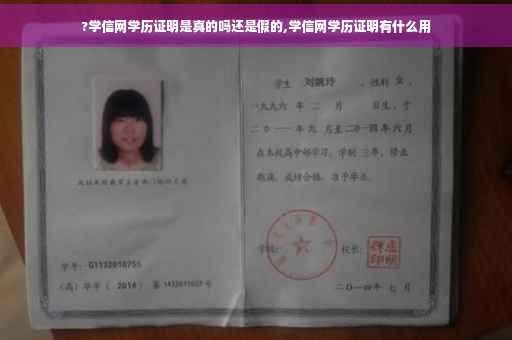 ?学信网学历证明是真的吗还是假的,学信网学历证明有什么用
学生 刘婉玲 ,性别 女 ,
一九九六 年 二 月 日生,于
二〇一一 年 九 月至 二〇一四 年 六 月
在本校高中部学习,学制 三 年,修业
期满,成绩合格,准予毕业。
学号: G1132010755
(高)毕字( 2014 )第 1432011027 号
学校: 校长:
二〇一四年 七 月